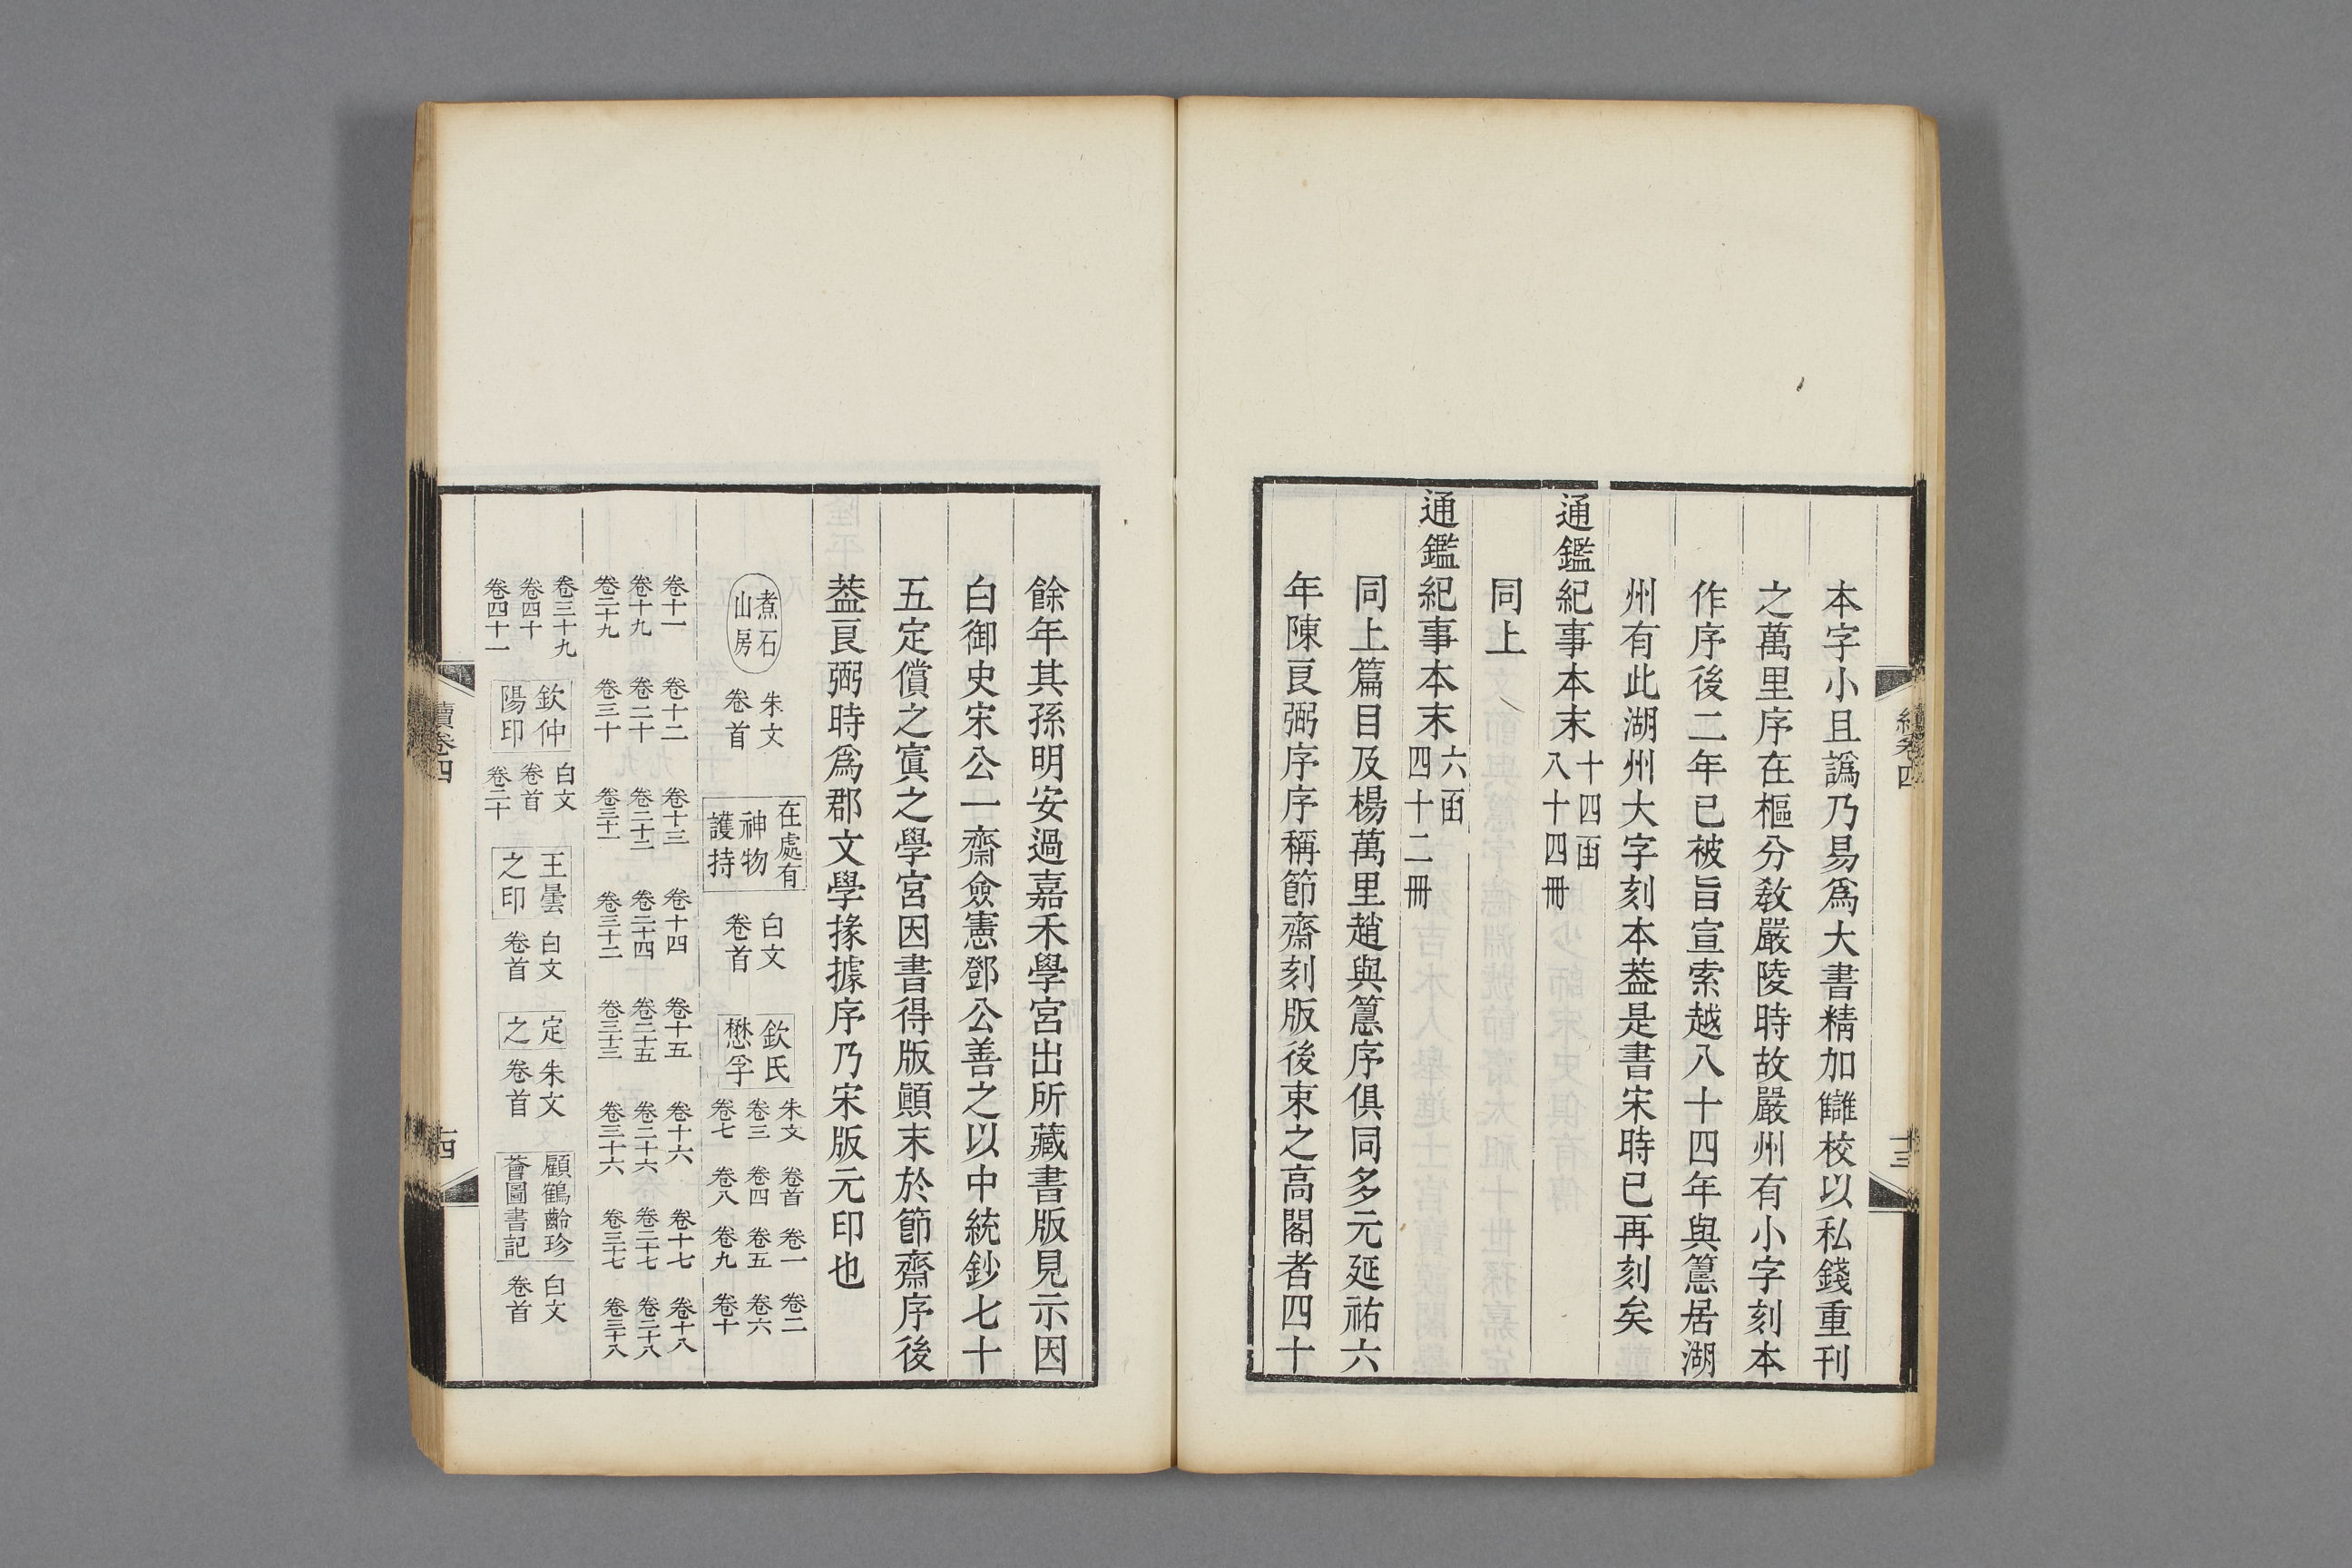 本字小且譌乃易爲大書精加讎校以私錢重刊
之萬里序在樞分敎嚴陵時故嚴州有小字刻本
作序後二年已被旨宣索越八十四年與𥲅居湖
州有此湖州大字刻本葢是書宋時已再刻矣
通鑑紀事本末十四函八十四冊
同上
通鑑紀事本末六函四十二冊
同上篇目及楊萬里趙與𥲅序俱同多元延祐六
年陳良弼序序稱節齋刻版後束之高閣者四十
續卷四
十三
餘年其孫明安過嘉禾學宮出所藏書版見示因
白御史宋公一齋僉憲鄧公善之以中統鈔七十
五定償之寘之學宮因書得版顚末於節齋序後
葢良弼時爲郡文學掾據序乃宋版元印也
煮石山房 朱文卷首
在處有神物護持 白文卷首
欽氏懋孚 朱文 卷首 卷一 卷二
卷三 卷四 卷五 卷六
卷七 卷八 卷九 卷十
卷十一 卷十二 卷十三 卷十四 卷十五 卷十六 卷十七 卷十八
卷十九 卷二十 卷二十二 卷二十四 卷二十五 卷二十六 卷二十七 卷二十八
卷二十九 卷三十 卷三十一 卷三十二 卷三十三 卷三十六 卷三十七 卷三十八
卷三十九
卷四十
卷四十一
欽仲陽印 白文卷首卷二十
王曇之印 白文卷首
定之 朱文卷首
顧鶴齡珍薈圖書記 白文卷首
續卷四
十四